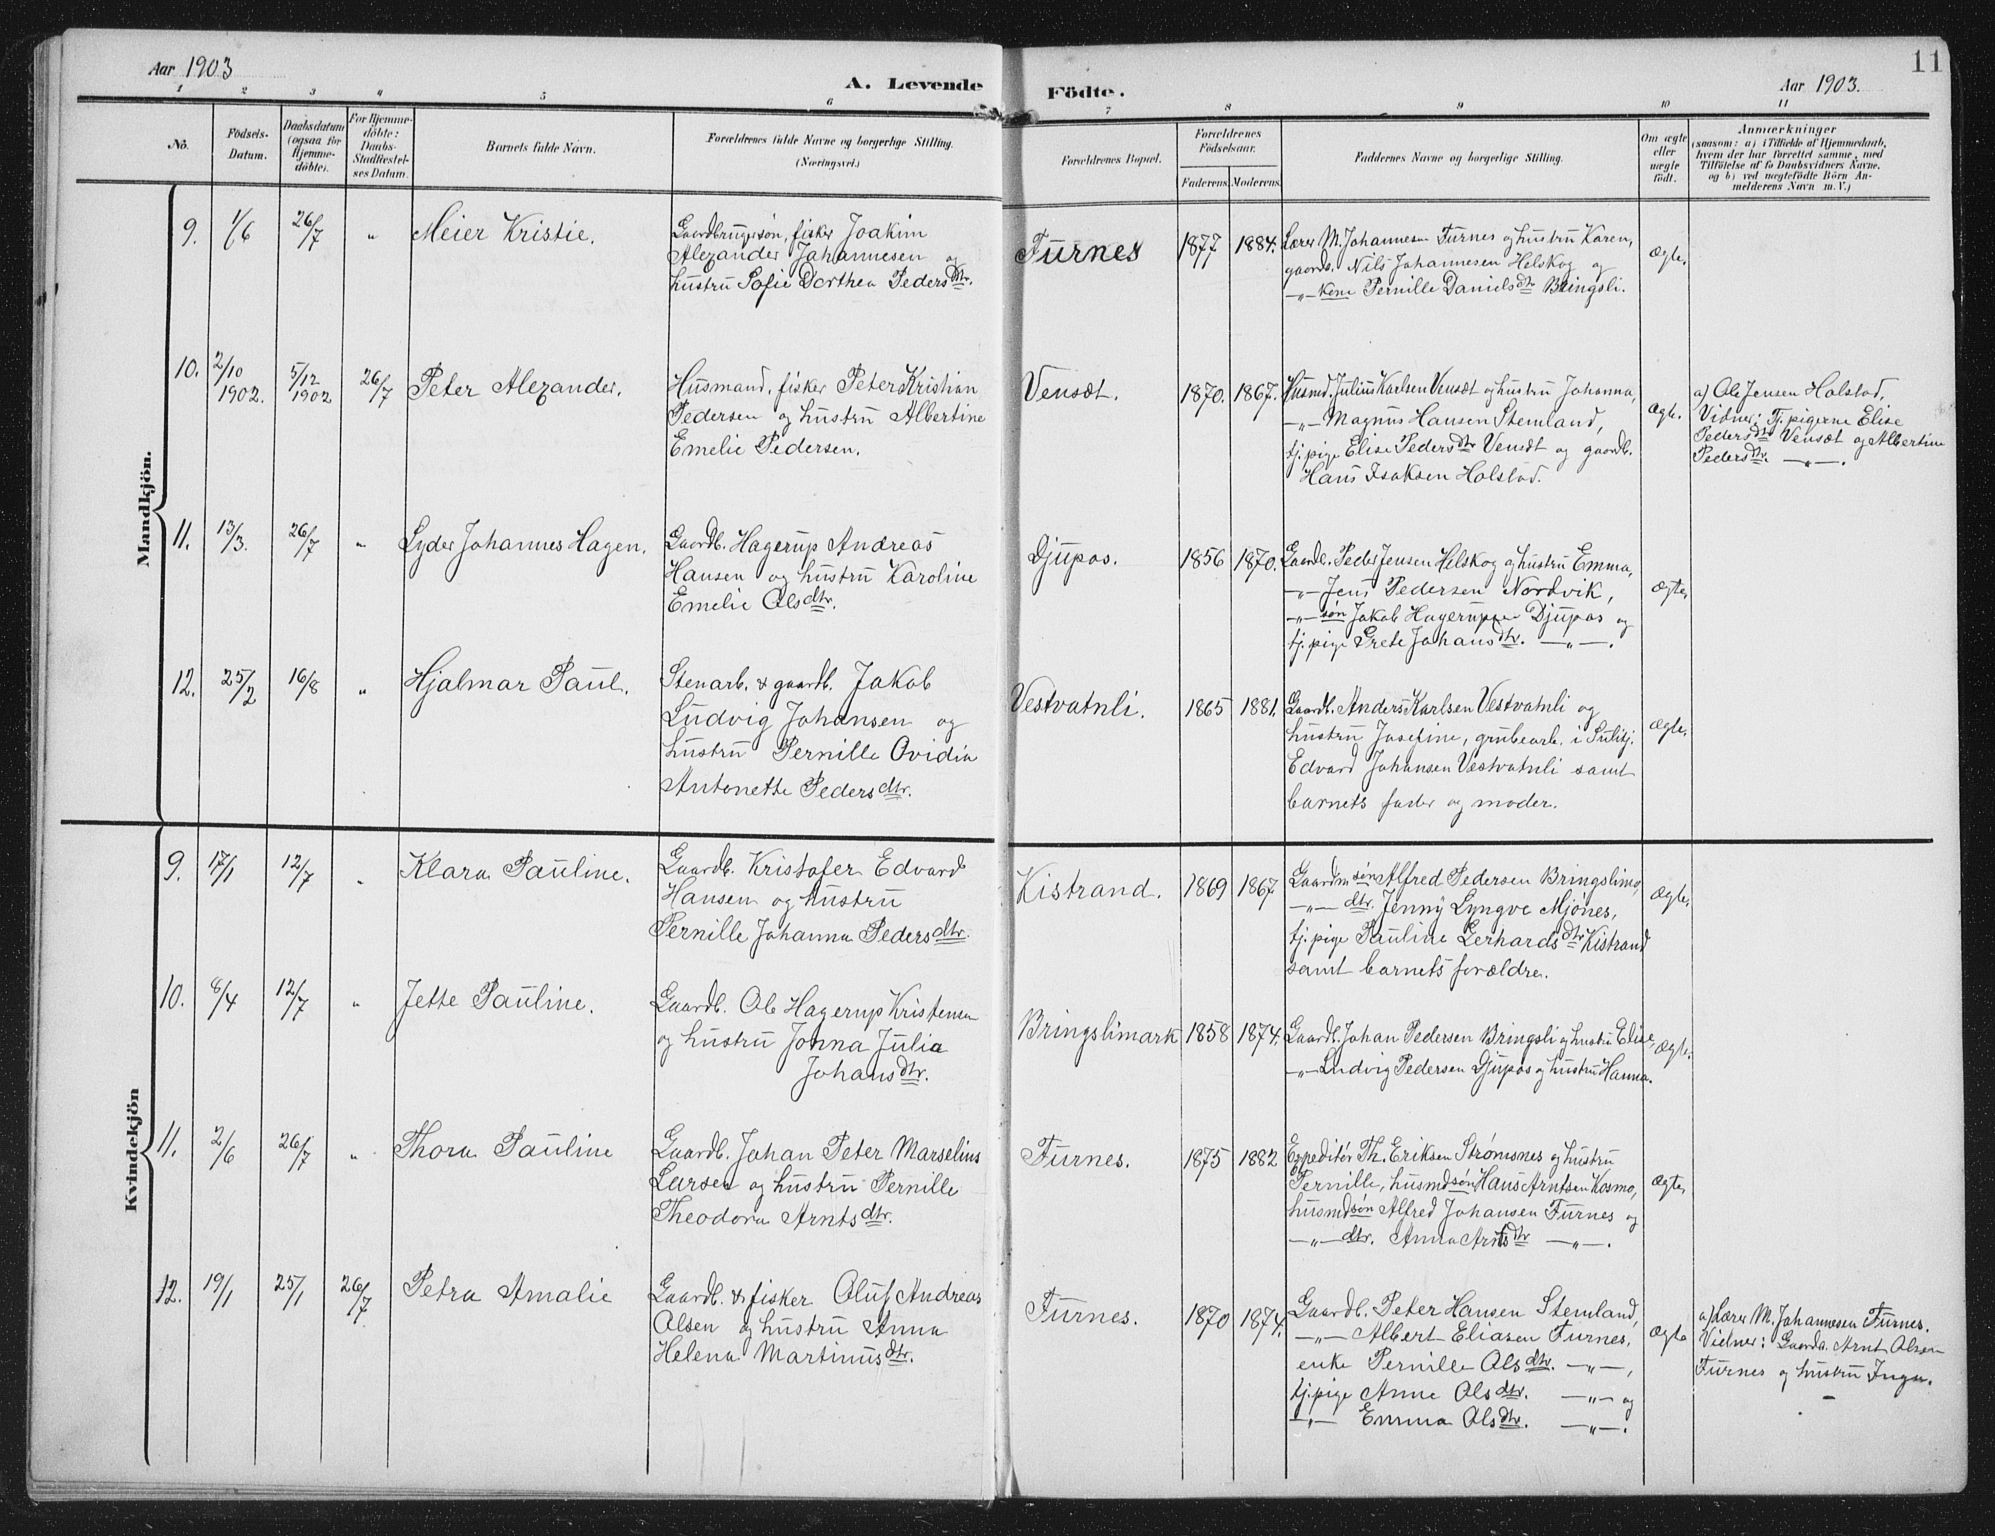 Aar 1903
A. Levende
Födte.
Aar 1903.
11
1 2 3 4 5 6 7 8 9 10 11
No.
Födsels-
Datum.
Daabsdatum
(ogsaa for
Hjemme-
döbte).
For Hjemme-
döbte:
Daabs-
Stadfæstel-
ses Datum.
Barnets fulde Navn.
Forældrenes fulde Navne og borgerlige Stilling.
(Næringsvei.)
Forældrenes Bopæl.
Forældrenes
Födselsaar.
Faderens. Moderens.
Faddernes Navne og borgerlige Stilling.
Om ægte
eller
uægte
födt.
Anmærkninger
(saasom: a) i Tilfælde af Hjemmedaab,
hvem der har forrettet samme, med
Tilföielse af to Daabsvidners Navne,
og b) ved uægtefödte Börn An-
melderens Navn m. V.)
Mandkjön.
9. 1/6 26/7 " Meier Kristie.
Gaardbrugersøn, fisker Joakim
Alexander Johannesen og
hustru Sofie Dorthea Pedersdtr.
Furnes 1877 1884.
Lærer M. Johannesen Furnes og hustru Karen,
gaardb. Nils Johannesen Helskog og
-"- kone Pernille Danielsdtr Bringsli.
Ægte.
10. 2/10 1902. 5/12 1902 26/7 Peter Alexander.
Husmand, fisker Peter Kristian
Pedersen og hustru Albertine
Emelie Pedersen.
Vensæt. 1870. 1867.
Husmd. Julius Karlsen Vensæt og hustru Johanna,
-"- Magnus Hansen Stemland,
tj.pige Elise Pedersdtr Vensæt og gaardb.
Hans Isaksen Holstad.
Ægte.
a) Ole Jensen Holstad.
Vidner: Tj.pigerne Elise
Pedersdtr Vensæt og Albertine
Pedersdtr. -"-.
11. 13/3. 26/7 " Lyder Johannes Hagen.
Gaardb. Hagerup Andreas
Hansen og hustru Karoline
Emelie Olsdtr.
Djupos. 1856 1870.
Gaardb. Peder Jensen Helskog og hustru Emma,
-"- Jens Pedersen Nordvik,
-"- søn Jakob Hagerupsen Djupos og
tj.pige Grete Johansdtr. -"-.
Ægte.
12. 25/2 16/8 " Hjalmar Paul.
Stenarb. & gaardb. Jakob
Ludvig Johansen og
hustru Pernille Ovidia
Antonette Pedersdtr.
Vestvatnli. 1865 1881.
Gaardb. Anders Karlsen Vestvatnli og
hustru Josefine, grubearb. i Sulitj.
Edvard Johansen Vestvatnli samt
barnets fader og moder.
Ægte.
Kvindekjön
9. 17/1 12/7 " Klara Pauline.
Gaardb. Kristofer Edvard
Hansen og hustru
Pernille Johanna Pedersdtr.
Kistrand. 1869 1867
Gaardm.søn Alfred Pedersen Bringslimo,
-"- dtr. Jenny Lyngve Mjønes,
tj.pige Pauline Gerhardsdtr Kistrand
samt barnets forældre.
Ægte.
10. 8/4 12/7 " Jette Pauline.
Gaardb. Ole Hagerup Kristensen
og hustru Jonna Julia
Johansdtr.
Bringslimark 1858 1874.
Gaardb. Johan Pedersen Bringsli og hustru Elise,
-"- Ludvig Pedersen Djupos og hustru Hanna.
Ægte.
11. 2/6 26/7 " Thora Pauline
Gaardb. Johan Peter Marselius
Larsen og hustru Pernille
Theodora Arntsdtr.
Furnes. 1875 1882
Expeditør Th. Eriksen Strømsnes og hustru
Pernille, husmdsøn Hans Arntsen Kosmo,
husmdsøn Alfred Johansen Furnes og
-"- dtr. Anna Arntsdtr -"-.
Ægte.
12. 19/1 25/1 26/7 Petra Amalie
Gaardb. & fisker Oluf Andreas
Olsen og hustru Anna
Helena Martinusdtr.
Furnes. 1870 1874.
Gaardb. Peter Hansen Stemland,
-"- Albert Eliasen Furnes,
enke Pernille Olsdtr. -"-,
tj.pige Anne Olsdtr. -"- og
-"- Emma Olsdtr. -"-.
Ægte
a) Lærer M. Johannesen Furnes.
Vidner: Gaardb. Arnt Olsen
Furnes og hustru Inga.